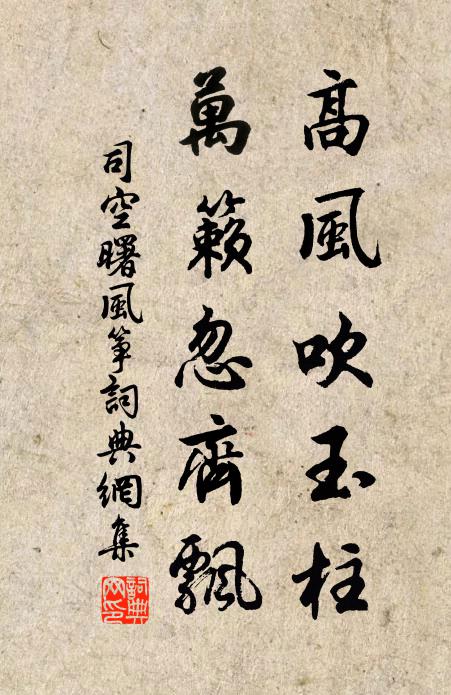 高風吹玉柱
萬籟忽齊飄
司空曙風箏詞典網集